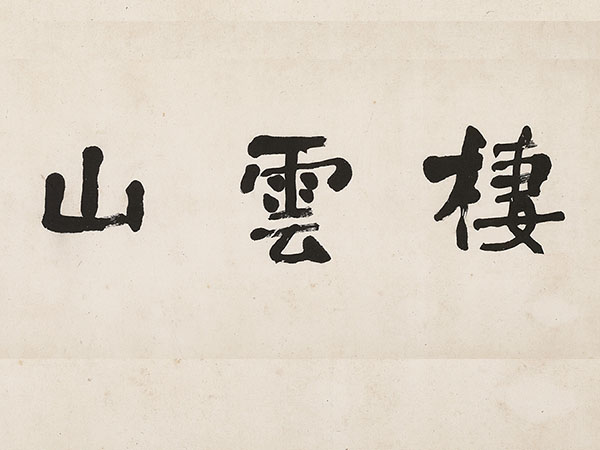 棲雲山